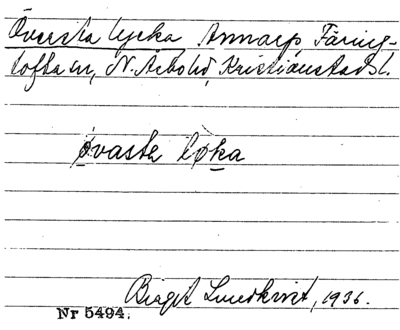 Översta lycka Annarp Färing-
tofta sn, N. Åsbo hd, Kristianstads l.
øvasta løka
Birgit Lundkvist, 1936.
Nr 5494.